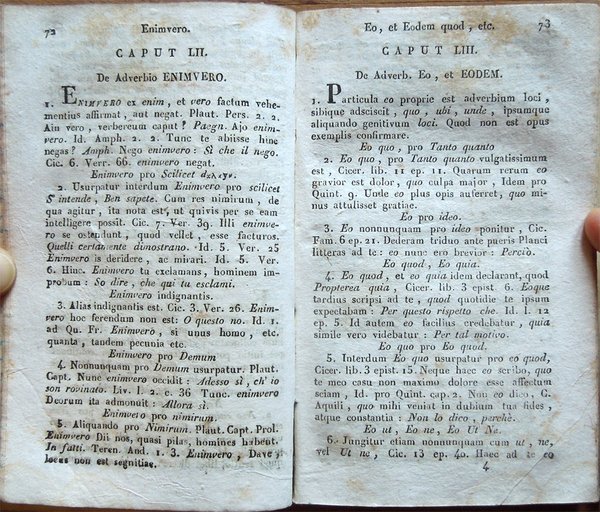 72 Enimvero.
CAPUT LII.
De Adverbio ENIMVERO.
1. ENIMVERO ex enim, et vero factum vehe-
mentius affirmat, aut negat. Plaut. Pers. 2. 2.
Ain vero, verbereum caput? Paegn. Ajo enim-
vero. Id. Amph. 2. 2. Tunc te abiisse hinc
negas? Amph. Nego enimvero: Sì che il nego.
Cic. 6. Verr. 66. enimvero negat.
Enimvero pro Scilicet
2. Usurpatur interdum Enimvero pro scilicet
S' intende, Ben sapete. Cum res nimirum, de
qua agitur, ita nota est, ut quivis per se eam
intelligere possit. Cic. 7. Ver. 39. Illi enimve-
ro se ostendunt, quod vellet, esse facturos.
Quelli certamente dimostrano. Id. 5. Ver. 25
Enimvero is deridere, ac mirari. Id. 5. Ver.
6. Hinc. Enimvero tu exclamans, hominem im-
probum: So dire, che qui tu esclami.
Enimvero indignantis.
3. Alias indignantis est. Cic. 3. Ver. 26. Enim-
vero hoc ferendum non est: O questo no. Id. 1.
ad Qu. Fr. Enimvero, si unus homo, etc.
quanta, tandem pecunia etc.
Enimvero pro Demum
4. Nonnunquam pro Demum usurpatur. Plaut.
Capt. Nunc enimvero occidit: Adesso sì, ch' io
son rovinato. Liv. l. 2. c. 36 Tunc. enimvero
Deorum ita admonuit: Allora sì.
Enimvero pro nimirum.
5. Aliquando pro Nimirum. Plaut. Capt. Prol.
Enimvero Dii nos, quasi pilas, homines habent.
In fatti. Teren. And. 1. 3. Enimvero, Dave,
locus non est segnitiae.
Eo, et Eodem quod, etc. 73
CAPUT LIII.
De Adverb. Eo, et EODEM.
1. Particula eo proprie est adverbium loci,
sibique adsciscit, quo, ubi, unde, ipsumque
aliquando genitivum loci. Quod non est opus
exemplis confirmare.
Eo quo, pro Tanto quanto
2. Eo quo, pro Tanto quanto vulgatissimum
est, Cicer. lib. 11 ep. 11. Quarum rerum eo
gravior est dolor, quo culpa major, Idem pro
Quint. 9. Unde eo plus opis auferret, quo mi-
nus attulisset gratiae.
Eo pro ideo.
3. Eo nonnunquam pro ideo ponitur, Cic.
Fam. 6 ep. 21. Dederam triduo ante pueris Planci
litteras ad te: eo nunc ero brevior: Perciò.
Eo quod, Eo quia.
4. Eo quod, et eo quia idem declarant, quod
Propterea quia, Cicer. lib. 3 epist. 6. Eoque
tardius scripsi ad te, quod quotidie te ipsum
expectabam: Per questo rispetto che. Id l. 12
ep. 5. Id autem eo facilius credebatur, quia
simile vero videbatur: Per tal motivo.
Eo quo pro Eo quod.
5. Interdum Eo quo usurpatur pro eo quod,
Cicer. lib. 3 epist. 15. Neque haec eo scribo, quo
te meo casu non maximo dolore esse affectum
sciam, Id pro Quint. cap. 2. Non eo dico, C.
Aquili, quo mihi veniat in dubium tua fides,
atque constantia: Non lo dico, perchè.
Eo ut, Eo ne, Eo Ut Ne.
6. Jungitur etiam nonnunquam cum ut, ne,
vel Ut ne, Cic. 13 ep. 40. Haec ad te eo
4